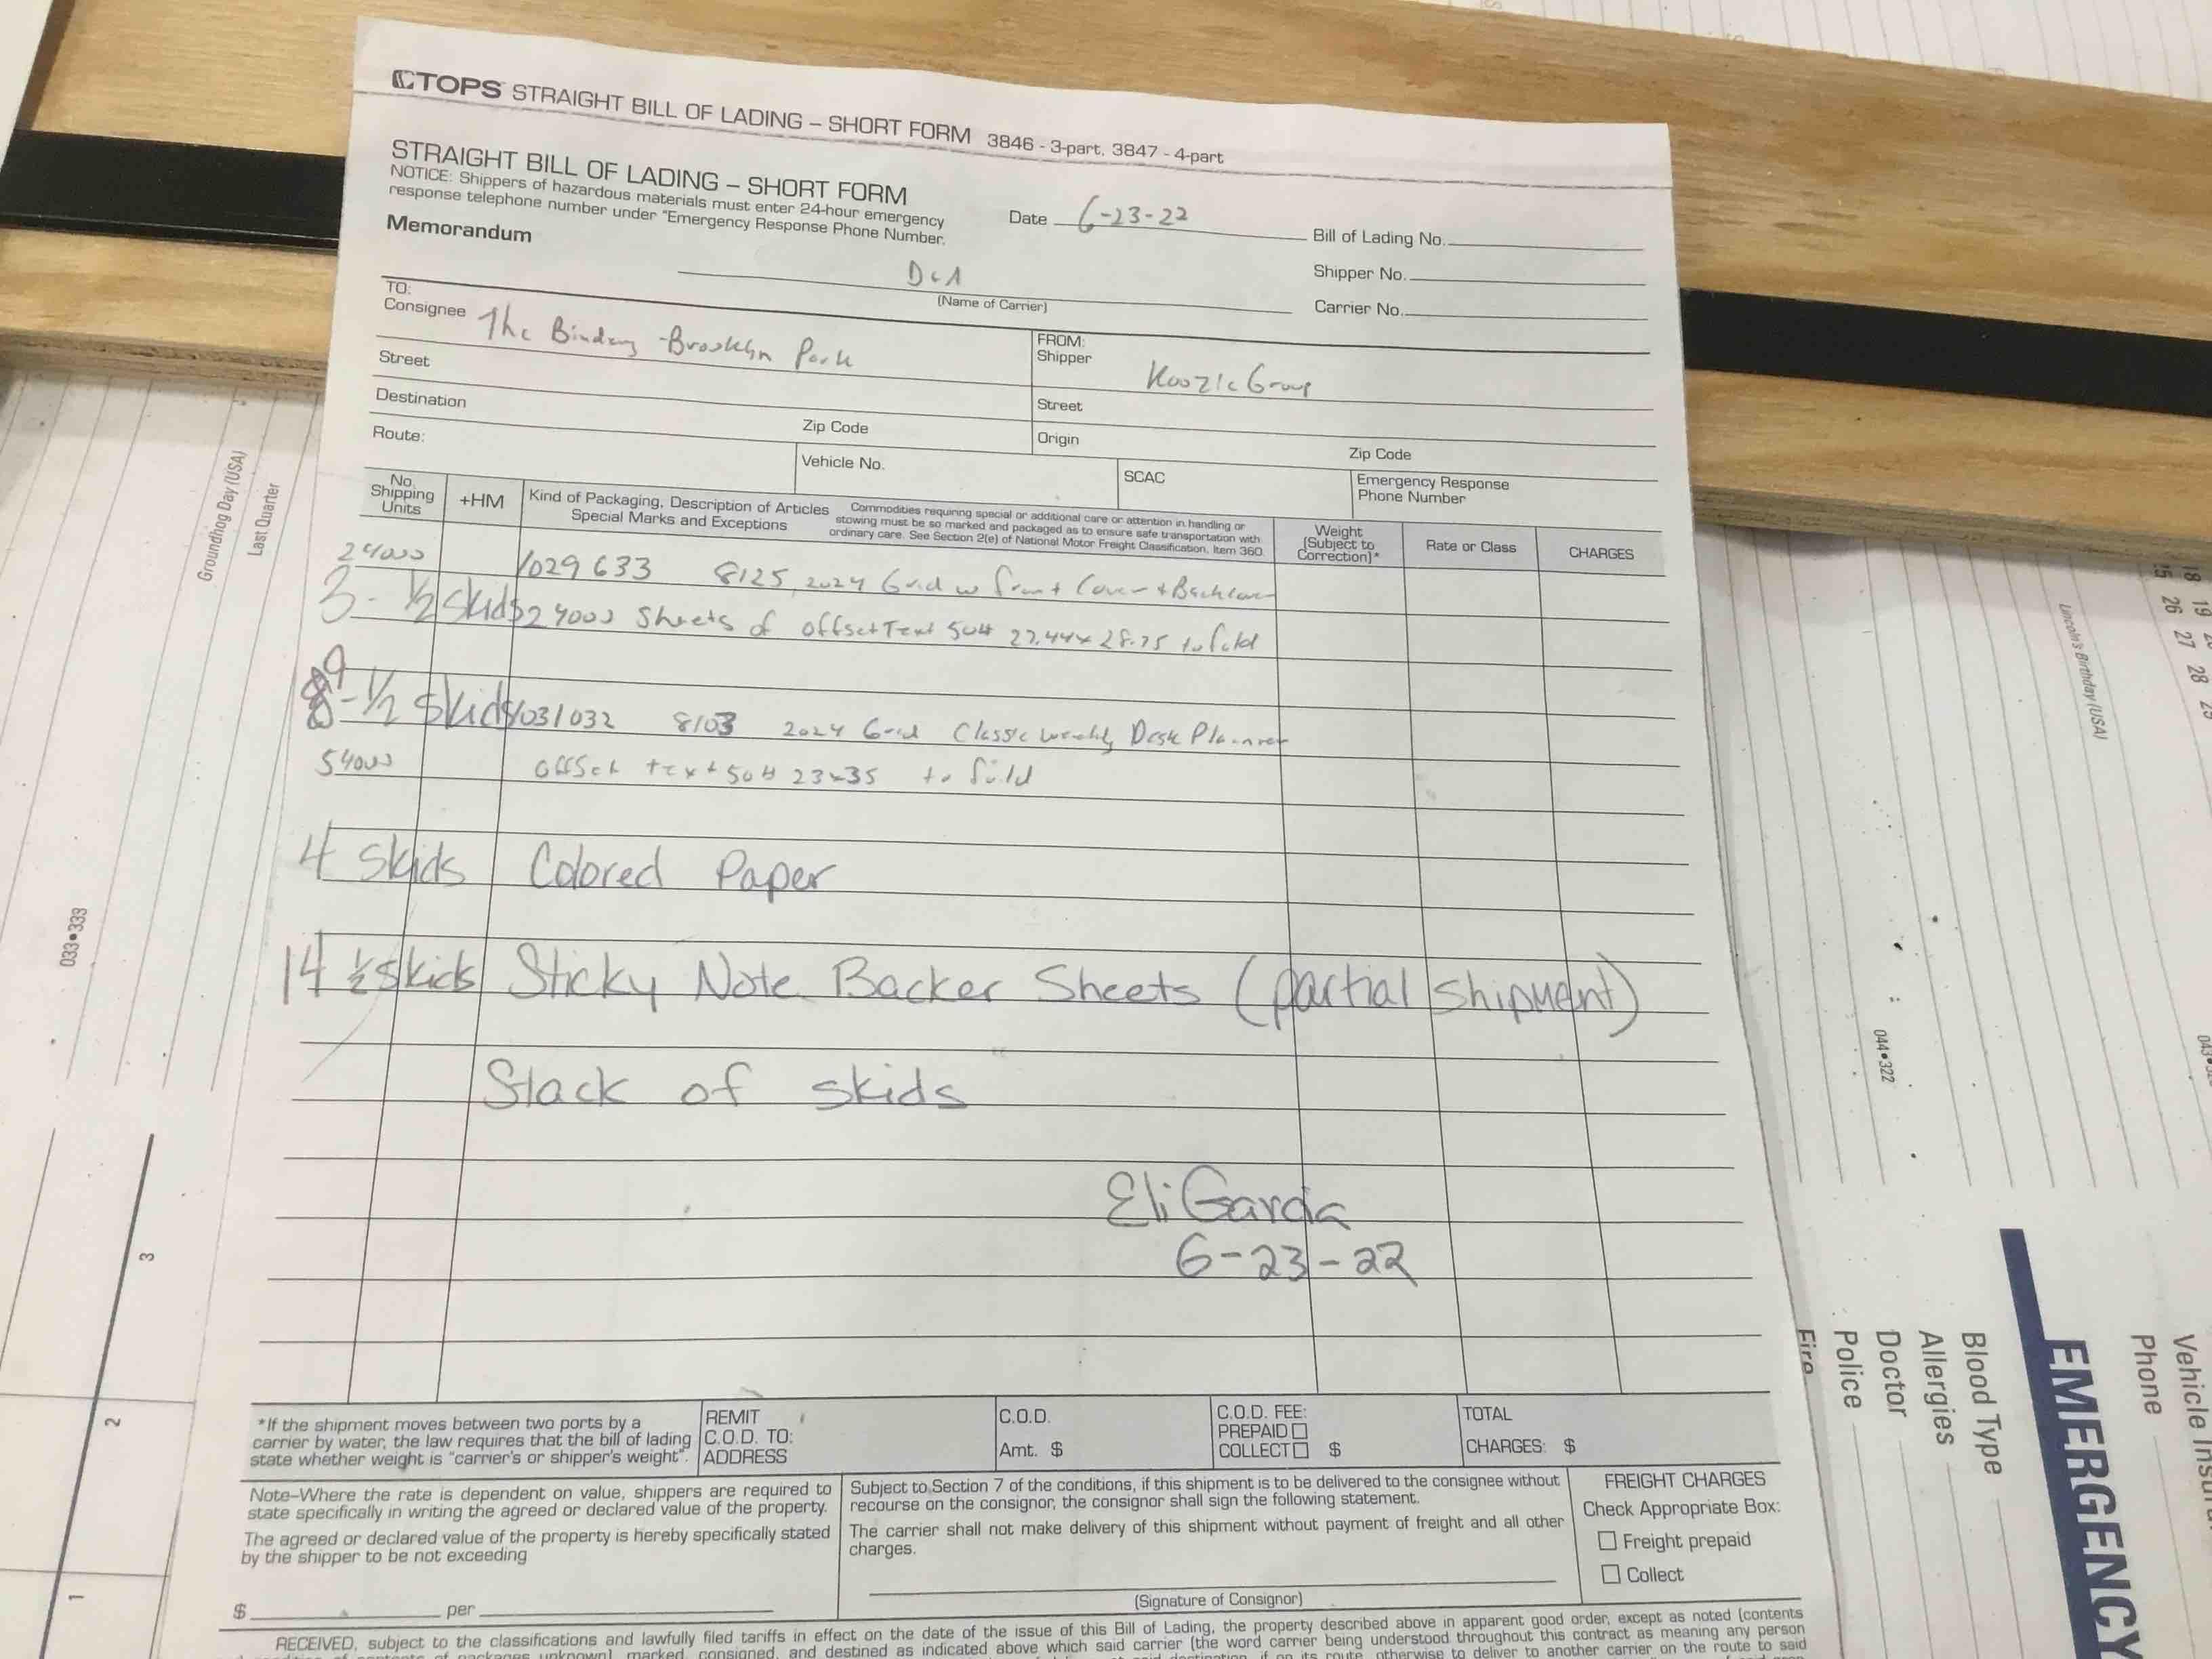 TOPS STRAIGHT BILL OF LADING – SHORT FORM 3846 - 3-part, 3847 - 4-part
STRAIGHT BILL OF LADING – SHORT FORM
NOTICE: Shippers of hazardous materials must enter 24-hour emergency
response telephone number under "Emergency Response Phone Number.
Memorandum
Date 6-23-22
Bill of Lading No.
Shipper No.
Carrier No.
(Name of Carrier)
TO:
Consignee The Bindery - Brooklyn Park
Street
Destination
Zip Code
Route:
Vehicle No.
FROM:
Shipper
Koozie Group
Street
Origin
Zip Code
SCAC
Emergency Response
Phone Number
No.
Shipping
Units
+HM
Kind of Packaging, Description of Articles
Special Marks and Exceptions
Commodities requiring special or additional care or attention in handling or
stowing must be so marked and packaged as to ensure safe transportation with
ordinary care. See Section 2(e) of National Motor Freight Classification, Item 360
Weight
(Subject to
Correction)*
Rate or Class
CHARGES
24000 1029633 8125, 2024 Grid w front Cover + Backcover
3 - 1/2 Skids 24000 Sheets of offset Text 50# 22.44x28.75 to fold
9 - 1/2 Skids 1031032 8103 2024 Grid Classic Weekly Desk Planner
54000 offset text 50# 23x35 to fold
4 skids Colored Paper
14 ½ skids Sticky Note Backer Sheets (partial shipment)
Stack of skids
Eli Garcia
6-23-22
*If the shipment moves between two ports by a
carrier by water, the law requires that the bill of lading
state whether weight is "carrier's or shipper's weight".
REMIT
C.O.D. TO:
ADDRESS
C.O.D.
Amt. $
C.O.D. FEE:
PREPAID
COLLECT $
TOTAL
CHARGES: $
Note–Where the rate is dependent on value, shippers are required to
state specifically in writing the agreed or declared value of the property.
The agreed or declared value of the property is hereby specifically stated
by the shipper to be not exceeding
$ per
Subject to Section 7 of the conditions, if this shipment is to be delivered to the consignee without
recourse on the consignor, the consignor shall sign the following statement.
The carrier shall not make delivery of this shipment without payment of freight and all other
charges.
(Signature of Consignor)
FREIGHT CHARGES
Check Appropriate Box:
Freight prepaid
Collect
RECEIVED, subject to the classifications and lawfully filed tariffs in effect on the date of the issue of this Bill of Lading, the property described above in apparent good order, except as noted (contents
marked, consigned, and destined as indicated above which said carrier (the word carrier being understood throughout this contract as meaning any person
Groundhog Day (USA)
Last Quarter
033•333
3
2
1
Lincoln's Birthday (USA)
18 19
25 26 27 28 29
044•322
Fire
Police
Doctor
Allergies
Blood Type
EMERGENCY
Phone
Vehicle